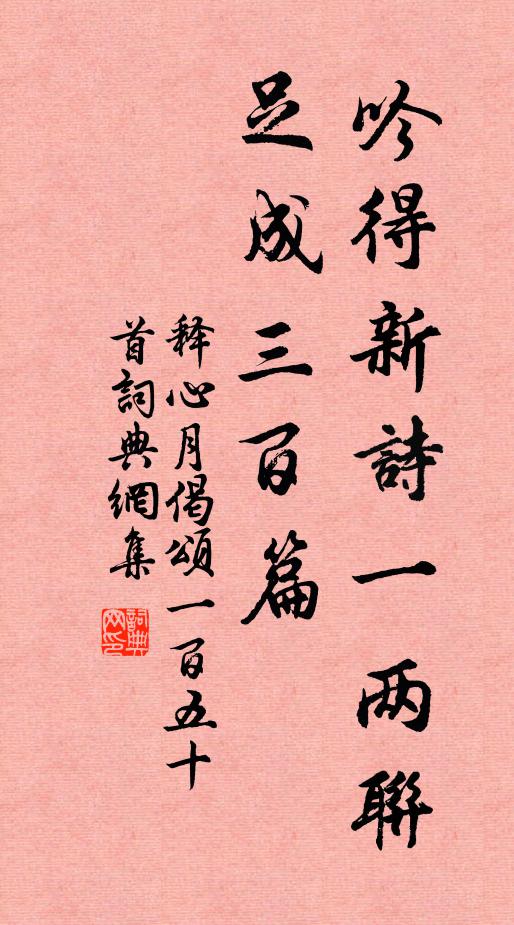 吟得新詩一两聯
足成三百篇
释心月偈頌一百五十
首詞典網集
詞典网印